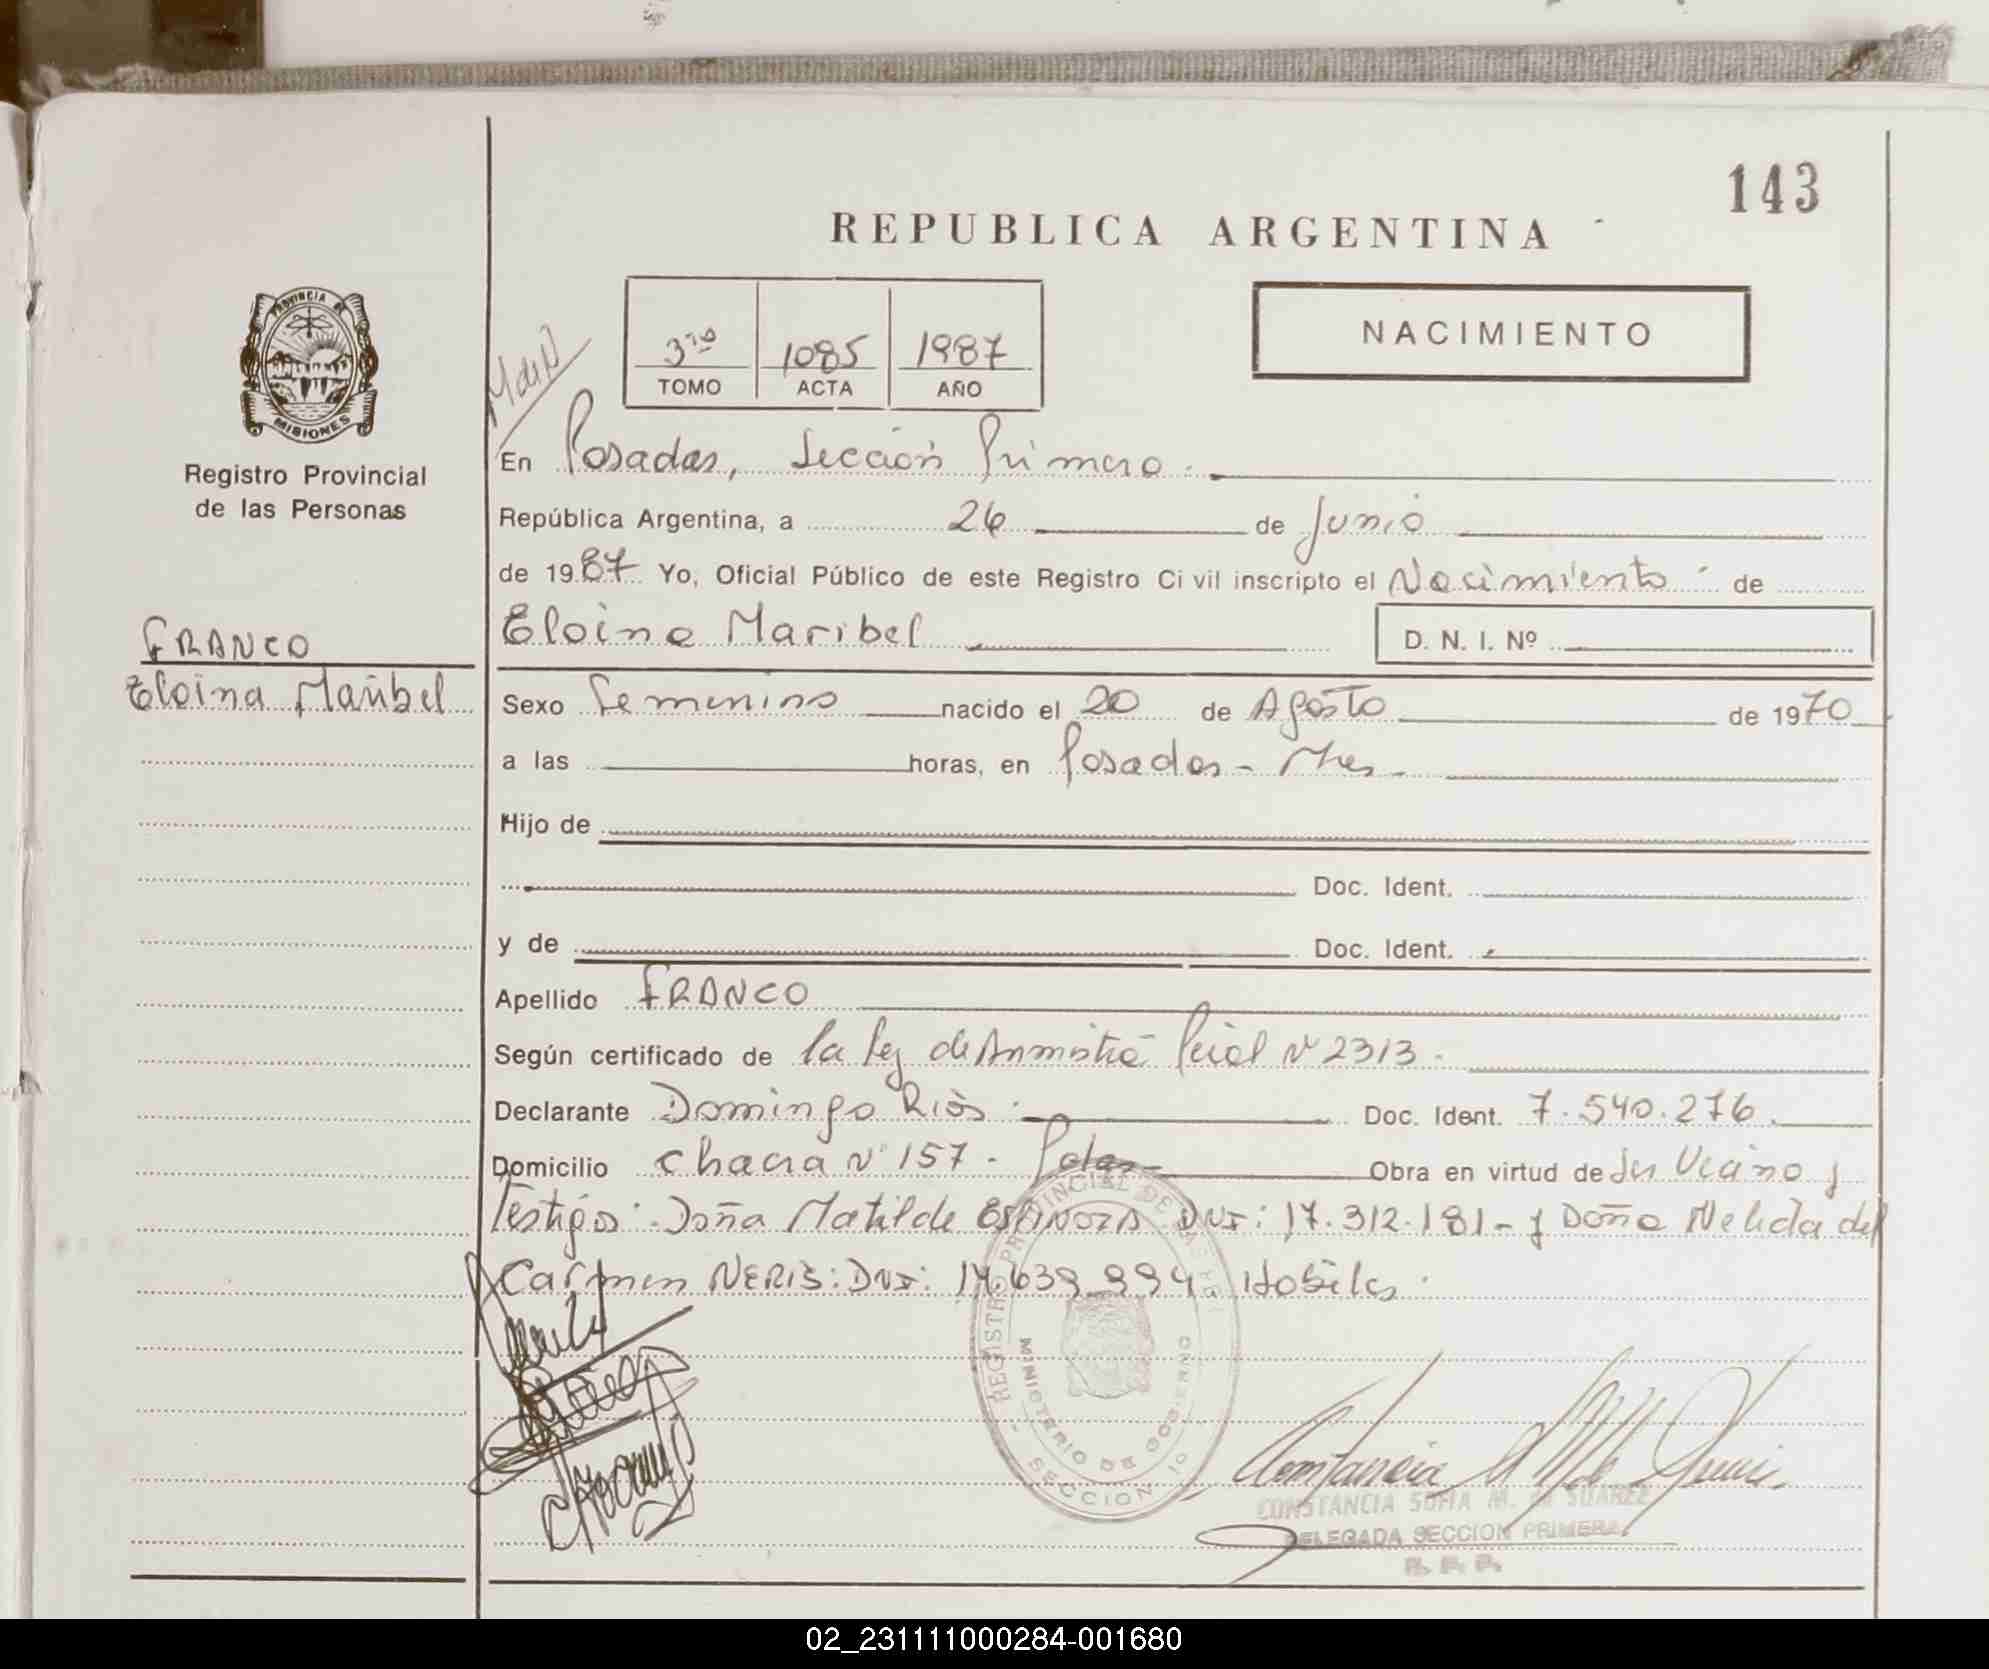 143
REPUBLICA ARGENTINA
PROVINCIA DE
MISIONES
Registro Provincial
de las Personas
3ro 1085 1987
TOMO ACTA AÑO
NACIMIENTO
En Posadas, Sección Primera.
República Argentina, a 26 de Junio
de 1987 Yo, Oficial Público de este Registro Ci vil inscripto el Nacimiento de
Eloina Maribel D. N. I. Nº
FRANCO
Eloina Maribel
Sexo Femenino nacido el 20 de Agosto de 1970
a las horas, en Posadas - Mnes.
Hijo de
Doc. Ident.
y de Doc. Ident.
Apellido FRANCO
Según certificado de la ley de Amnistia Pcial Nº 2313.
Declarante Domingo Rios. Doc. Ident. 7.540.276.
Domicilio Chacra Nº 157 - Pdas Obra en virtud de ser Vecino y
Testigos: Doña Matilde ESPINOZA DNI: 17.312.181 - y Doña Nelida del
Carmen NERIS: DNI: 14.639.994 Habiles.
REGISTRO PROVINCIAL DE LAS
MINISTERIO DE GOBIERNO
SECCION 10
CONSTANCIA SOFIA M. de SUAREZ
DELEGADA SECCION PRIMERA
R. P. P.
02_231111000284-001680